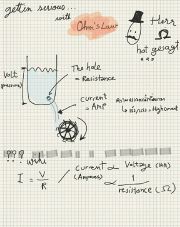 gettin serious...
with
Ohm's Law
Herr
Ω
hat gesagt
...
Volt
(pressure)
The hole
= Resistance
current
= Amp
???
I = V/R
current ∝ Voltage
(Amperes)
∝ 1/resistance (Ω)